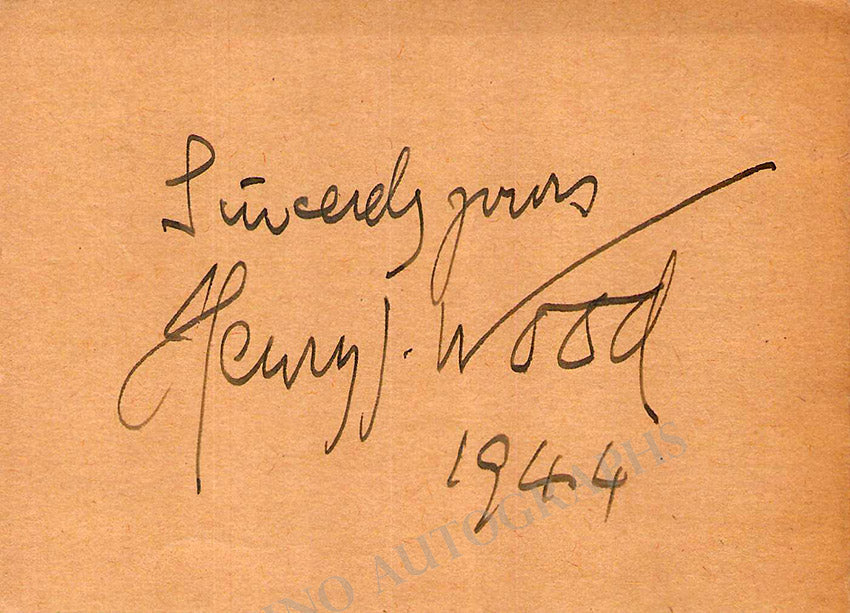 Sincerely yours
Henry J. Wood
1944
INO AUTOGRAPHS